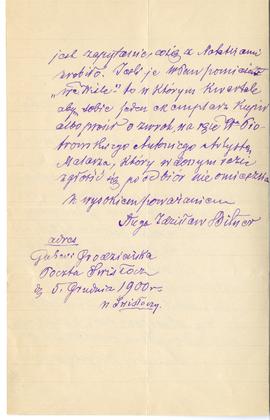 jest zapytanie, co się z Notatkami
zrobiło. Jeśli je WPan pomieścił
"we Wiśle" to w którym kwartale
aby sobie jeden egzemplarz kupić
albo proszę o zwrot na ręce W Pio-
trowskiego Antoniego artysty
Malarza, który w danym razie
zgłosić się po odbiór nie omieszka
Z wysokiem poważaniem
Sługa Zdzisław Bitner
adres
Gubern: Grodzieńska
Poczta Swisłocz
d. 5, Grudnia 1900 r.
w Swisłoczy.